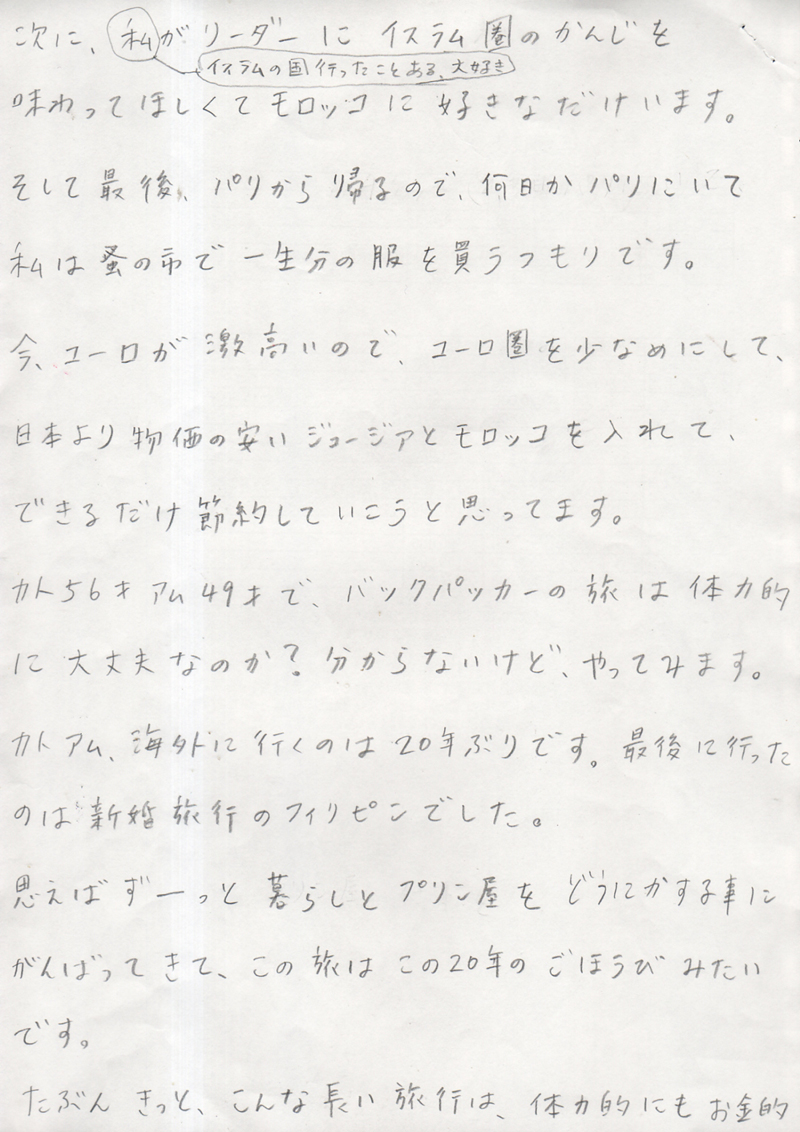 次に、私がリーダーにイスラム圏のかんじを
イスラムの国行ったことある、大好き
味わってほしくてモロッコに好きなだけいます。
そして最後、パリから帰るので、何日かパリにいて
私は蚤の市で一生分の服を買うつもりです。
今、ユーロが激高いので、ユーロ圏を少なめにして、
日本より物価の安いジョージアとモロッコを入れて、
できるだけ節約していこうと思ってます。
カト56才アム49才で、バックパッカーの旅は体力的
に大丈夫なのか?分からないけど、やってみます。
カトアム、海外に行くのは20年ぶりです。最後に行った
のは新婚旅行のフィリピンでした。
思えばずーっと暮らしとプリン屋をどうにかする事に
がんばってきて、この旅はこの20年のごほうびみたい
です。
たぶんきっと、こんな長い旅行は、体力的にもお金的